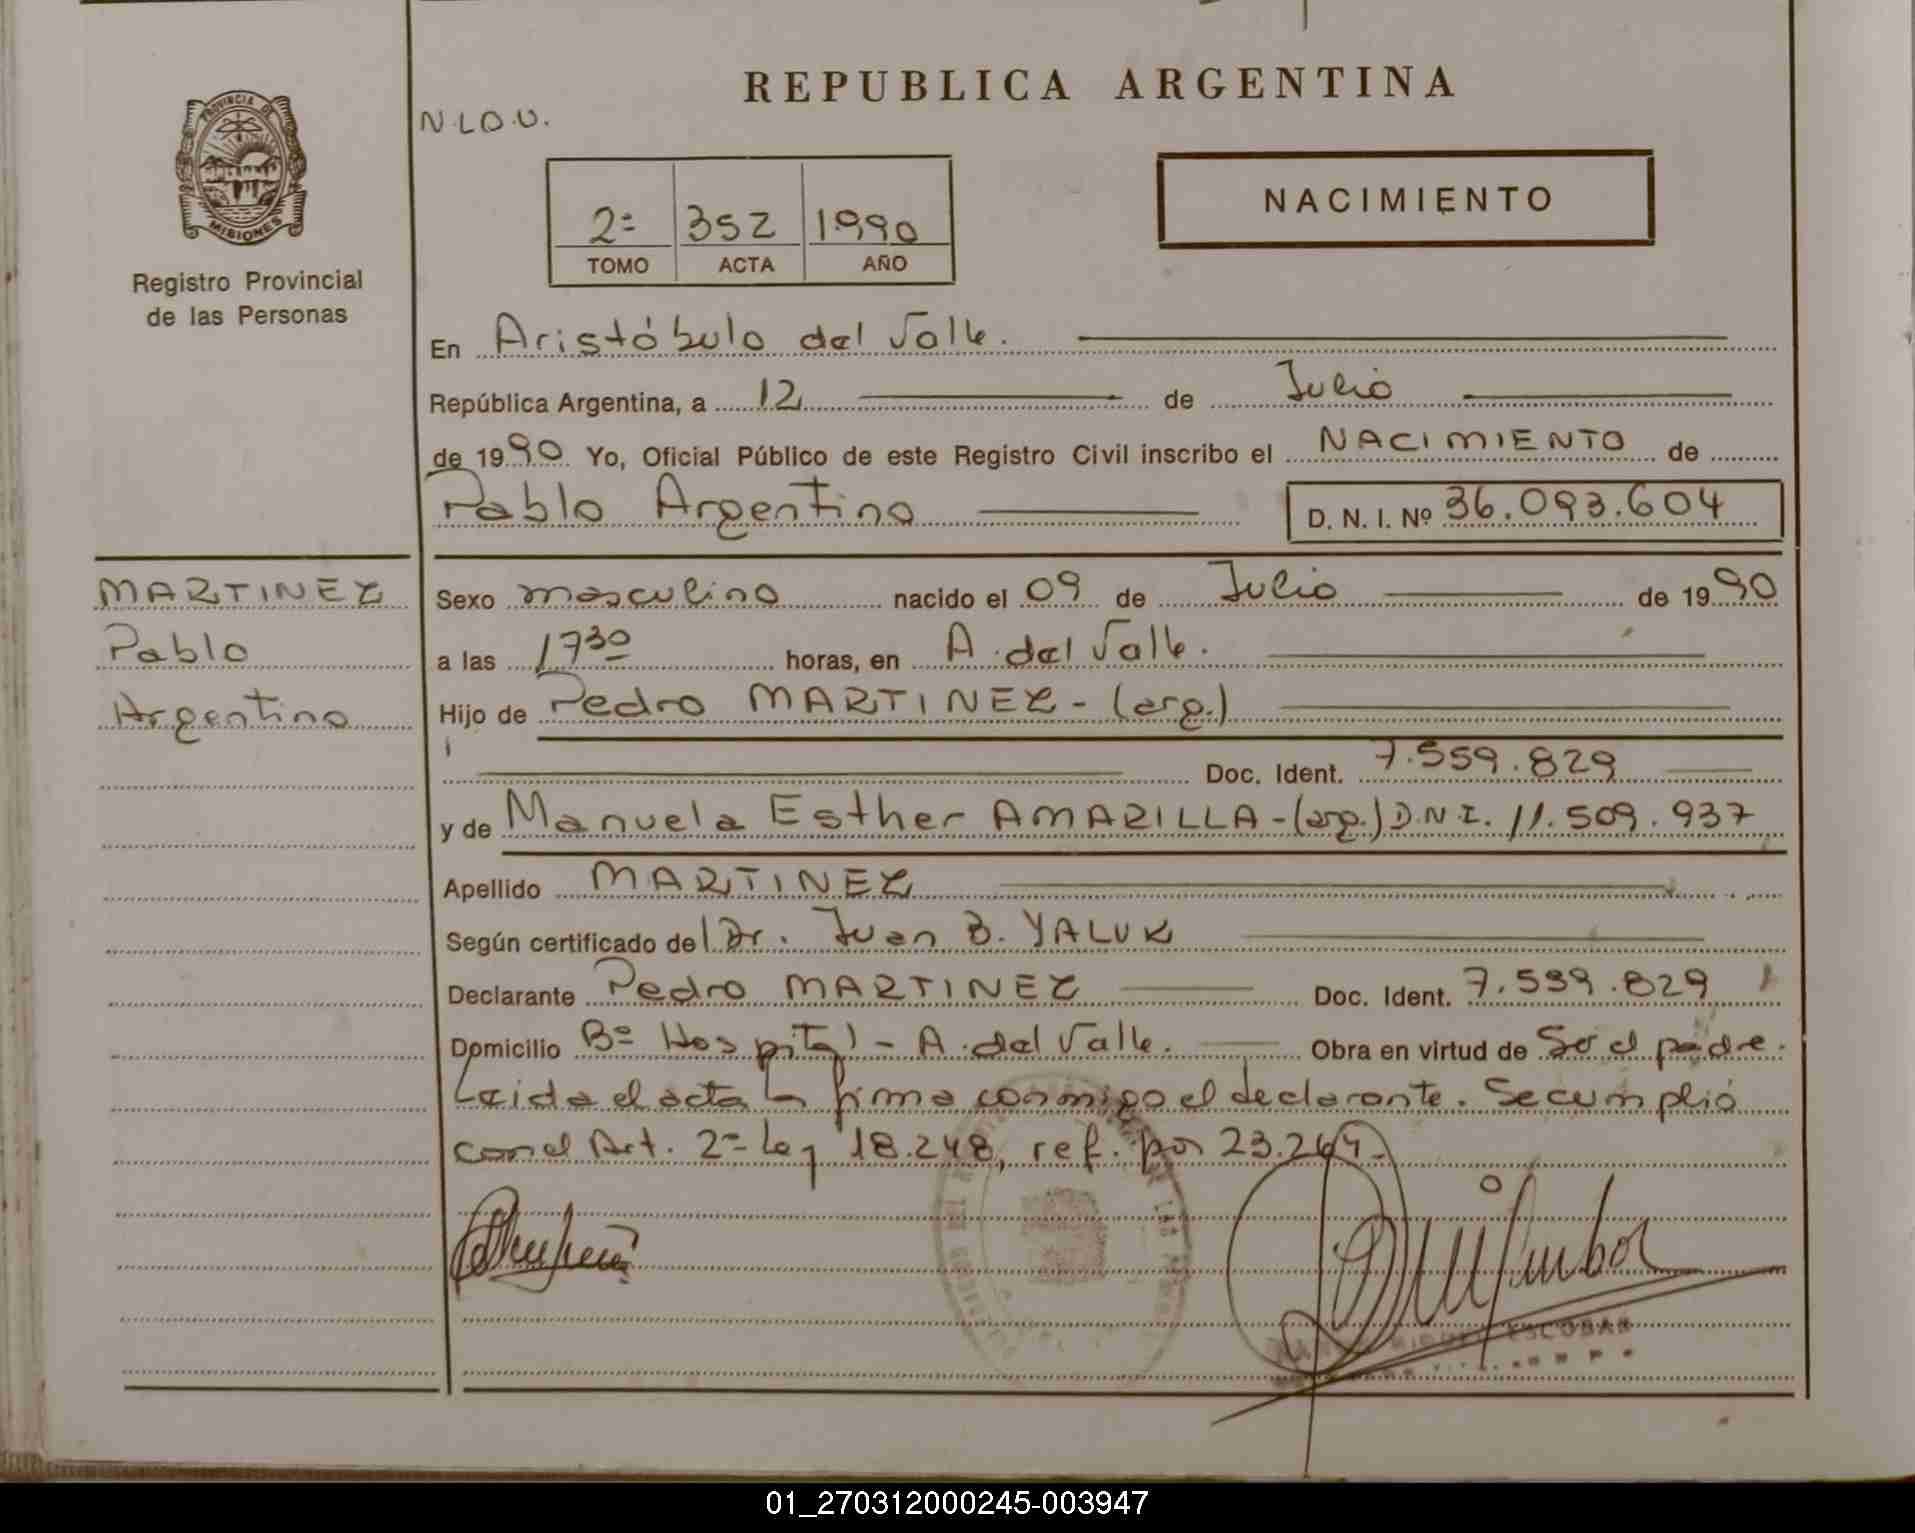 REPUBLICA ARGENTINA
PROVINCIA DE
MISIONES
Registro Provincial
de las Personas
N.L.O.U.
NACIMIENTO
2º 352 1990
TOMO ACTA AÑO
En Aristóbulo del Valle.
República Argentina, a 12 de Julio
de 1990 Yo, Oficial Público de este Registro Civil inscribo el NACIMIENTO de
Pablo Argentino D. N. I. Nº 36.093.604
MARTINEZ
Pablo
Argentino
Sexo masculino nacido el 09 de Julio de 1990
a las 17³⁰ horas, en A. del Valle.
Hijo de Pedro MARTINEZ - (arg.)
Doc. Ident. 7.559.829
y de Manuela Esther AMARILLA - (arg.) D.N.I. 11.509.937
Apellido MARTINEZ
Según certificado del Dr. Juan B. YALUK
Declarante Pedro MARTINEZ Doc. Ident. 7.559.829
Domicilio Bº Hospital - A. del Valle. Obra en virtud de Se el padre.
Leida el acta la firma conmigo el declarante. Se cumplió
con el Art. 2º Ley 18.248, ref. por 23.264.
ESCOBAR
01_270312000245-003947